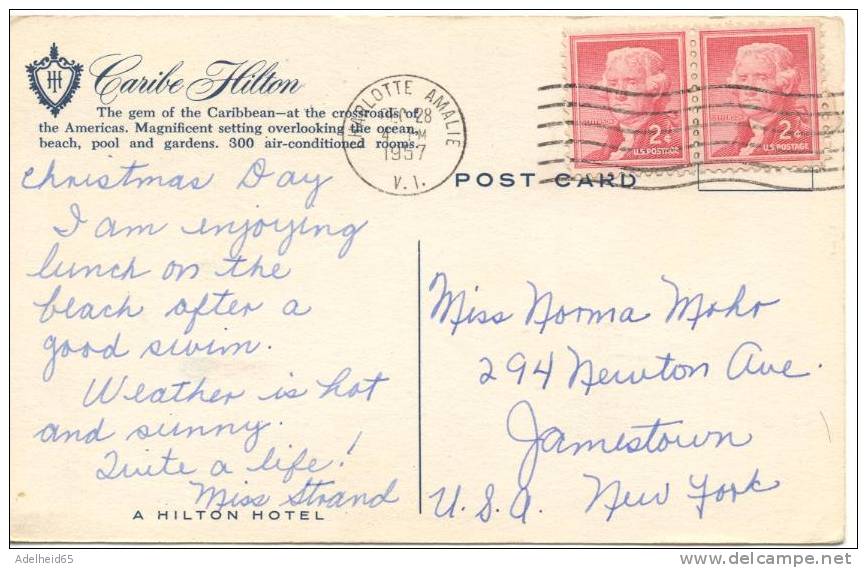 Caribe Hilton
The gem of the Caribbean—at the crossroads of
the Americas. Magnificent setting overlooking the ocean,
beach, pool and gardens. 300 air-conditioned rooms.
CHARLOTTE AMALIE
DEC 28
4 PM
1957
V. I.
2¢
U.S. POSTAGE
2¢
U.S. POSTAGE
POST CARD
Christmas Day
I am enjoying
lunch on the
beach after a
good swim.
Weather is hot
and sunny.
Quite a life!
Miss Strand
Miss Norma Mohr
294 Newton Ave.
Jamestown
U.S.A. New York
A HILTON HOTEL
Adelheid65
www.delcampe.net